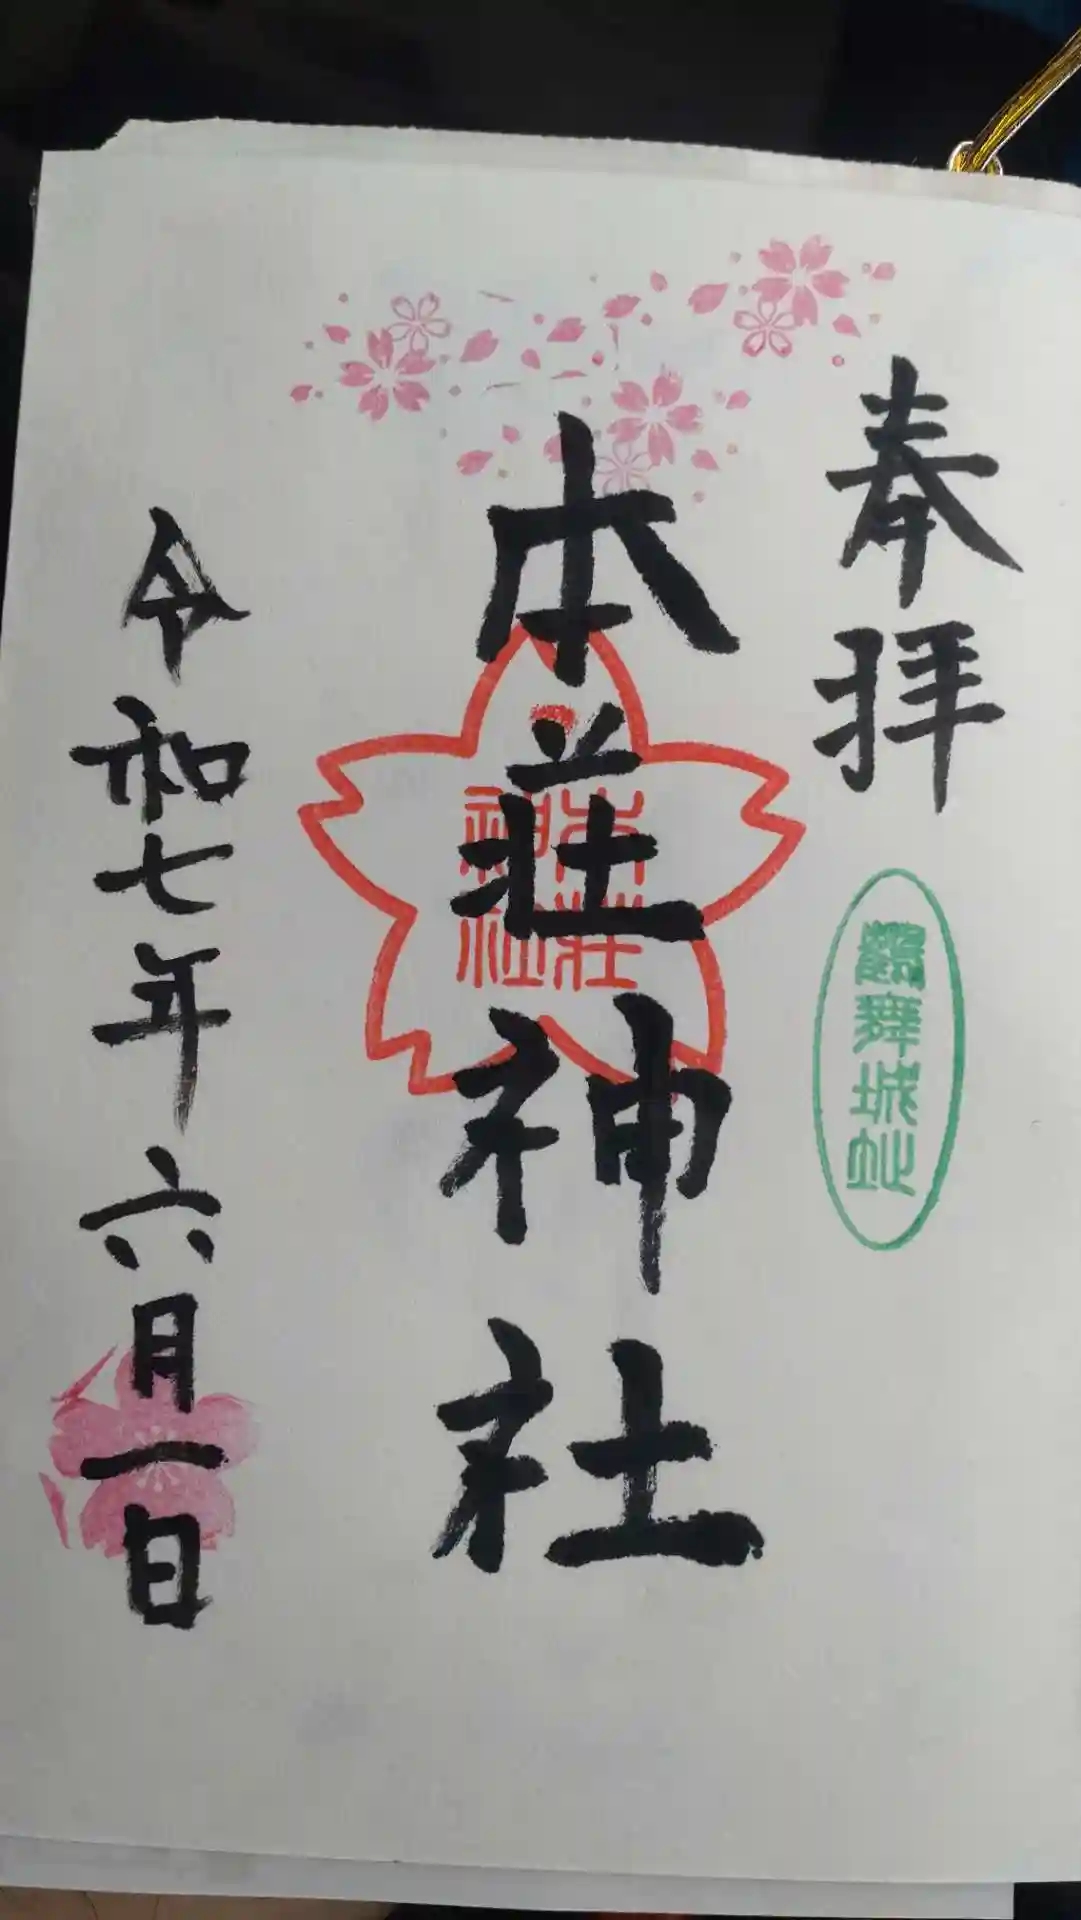 奉拝
鶴舞城址
本荘神社
本荘
神社
令和七年六月一日